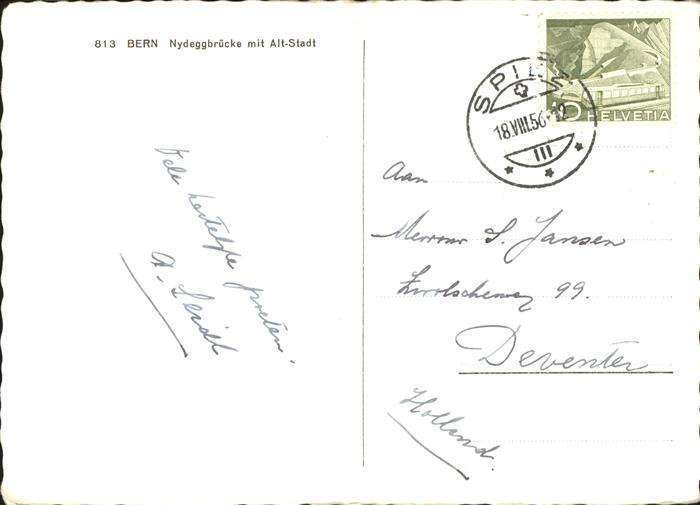 813 BERN Nydeggbrücke mit Alt-Stadt
Vele hartelijke groeten.
A. Seidel
SPIEZ
18.VIII.56-12
III
10
HELVETIA
Aan
Mevrouw S. Jansen
Zwolscheweg 99.
Deventer
Holland.